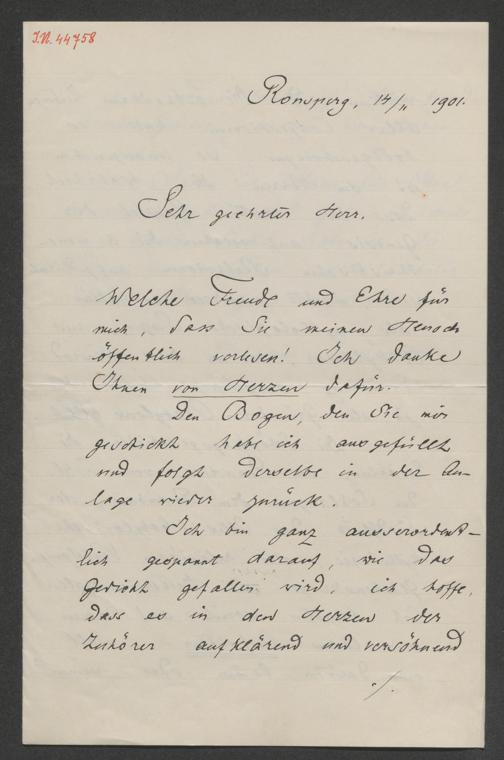 I.N. 44758
Ronsperg, 14/11 1901.
Sehr geehrter Herr.
Welche Freude und Ehre für
mich, dass Sie meinen Henoch
öffentlich vorlesen! Ich danke
Ihnen von Herzen dafür.
Den Bogen, den Sie mir
geschickt habe ich ausgefüllt
und folgt derselbe in der An-
lage wieder zurück.
Ich bin ganz ausserordent-
lich gespannt darauf, wie das
Gedicht gefallen wird, ich hoffe,
dass es in den Herzen der
Zuhörer aufklärend und versöhnend
./.